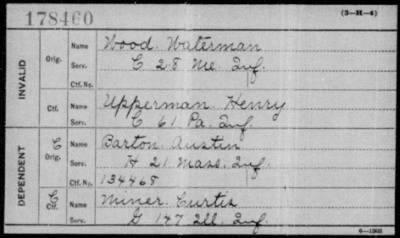 178460
(3-H-4)
INVALID
Orig.
Name Wood Waterman
Serv. C 28 Me. Inf.
Ctf. No.
Ctf.
Name Upperman Henry
Serv. C 61 Pa. Inf.
DEPENDENT
C Orig.
Name Barton Austin
Serv. H 21 Mass. Inf.
Ctf. No. 134468
C Ctf.
Name Miner Curtis
Serv. G 147 Ill. Inf.